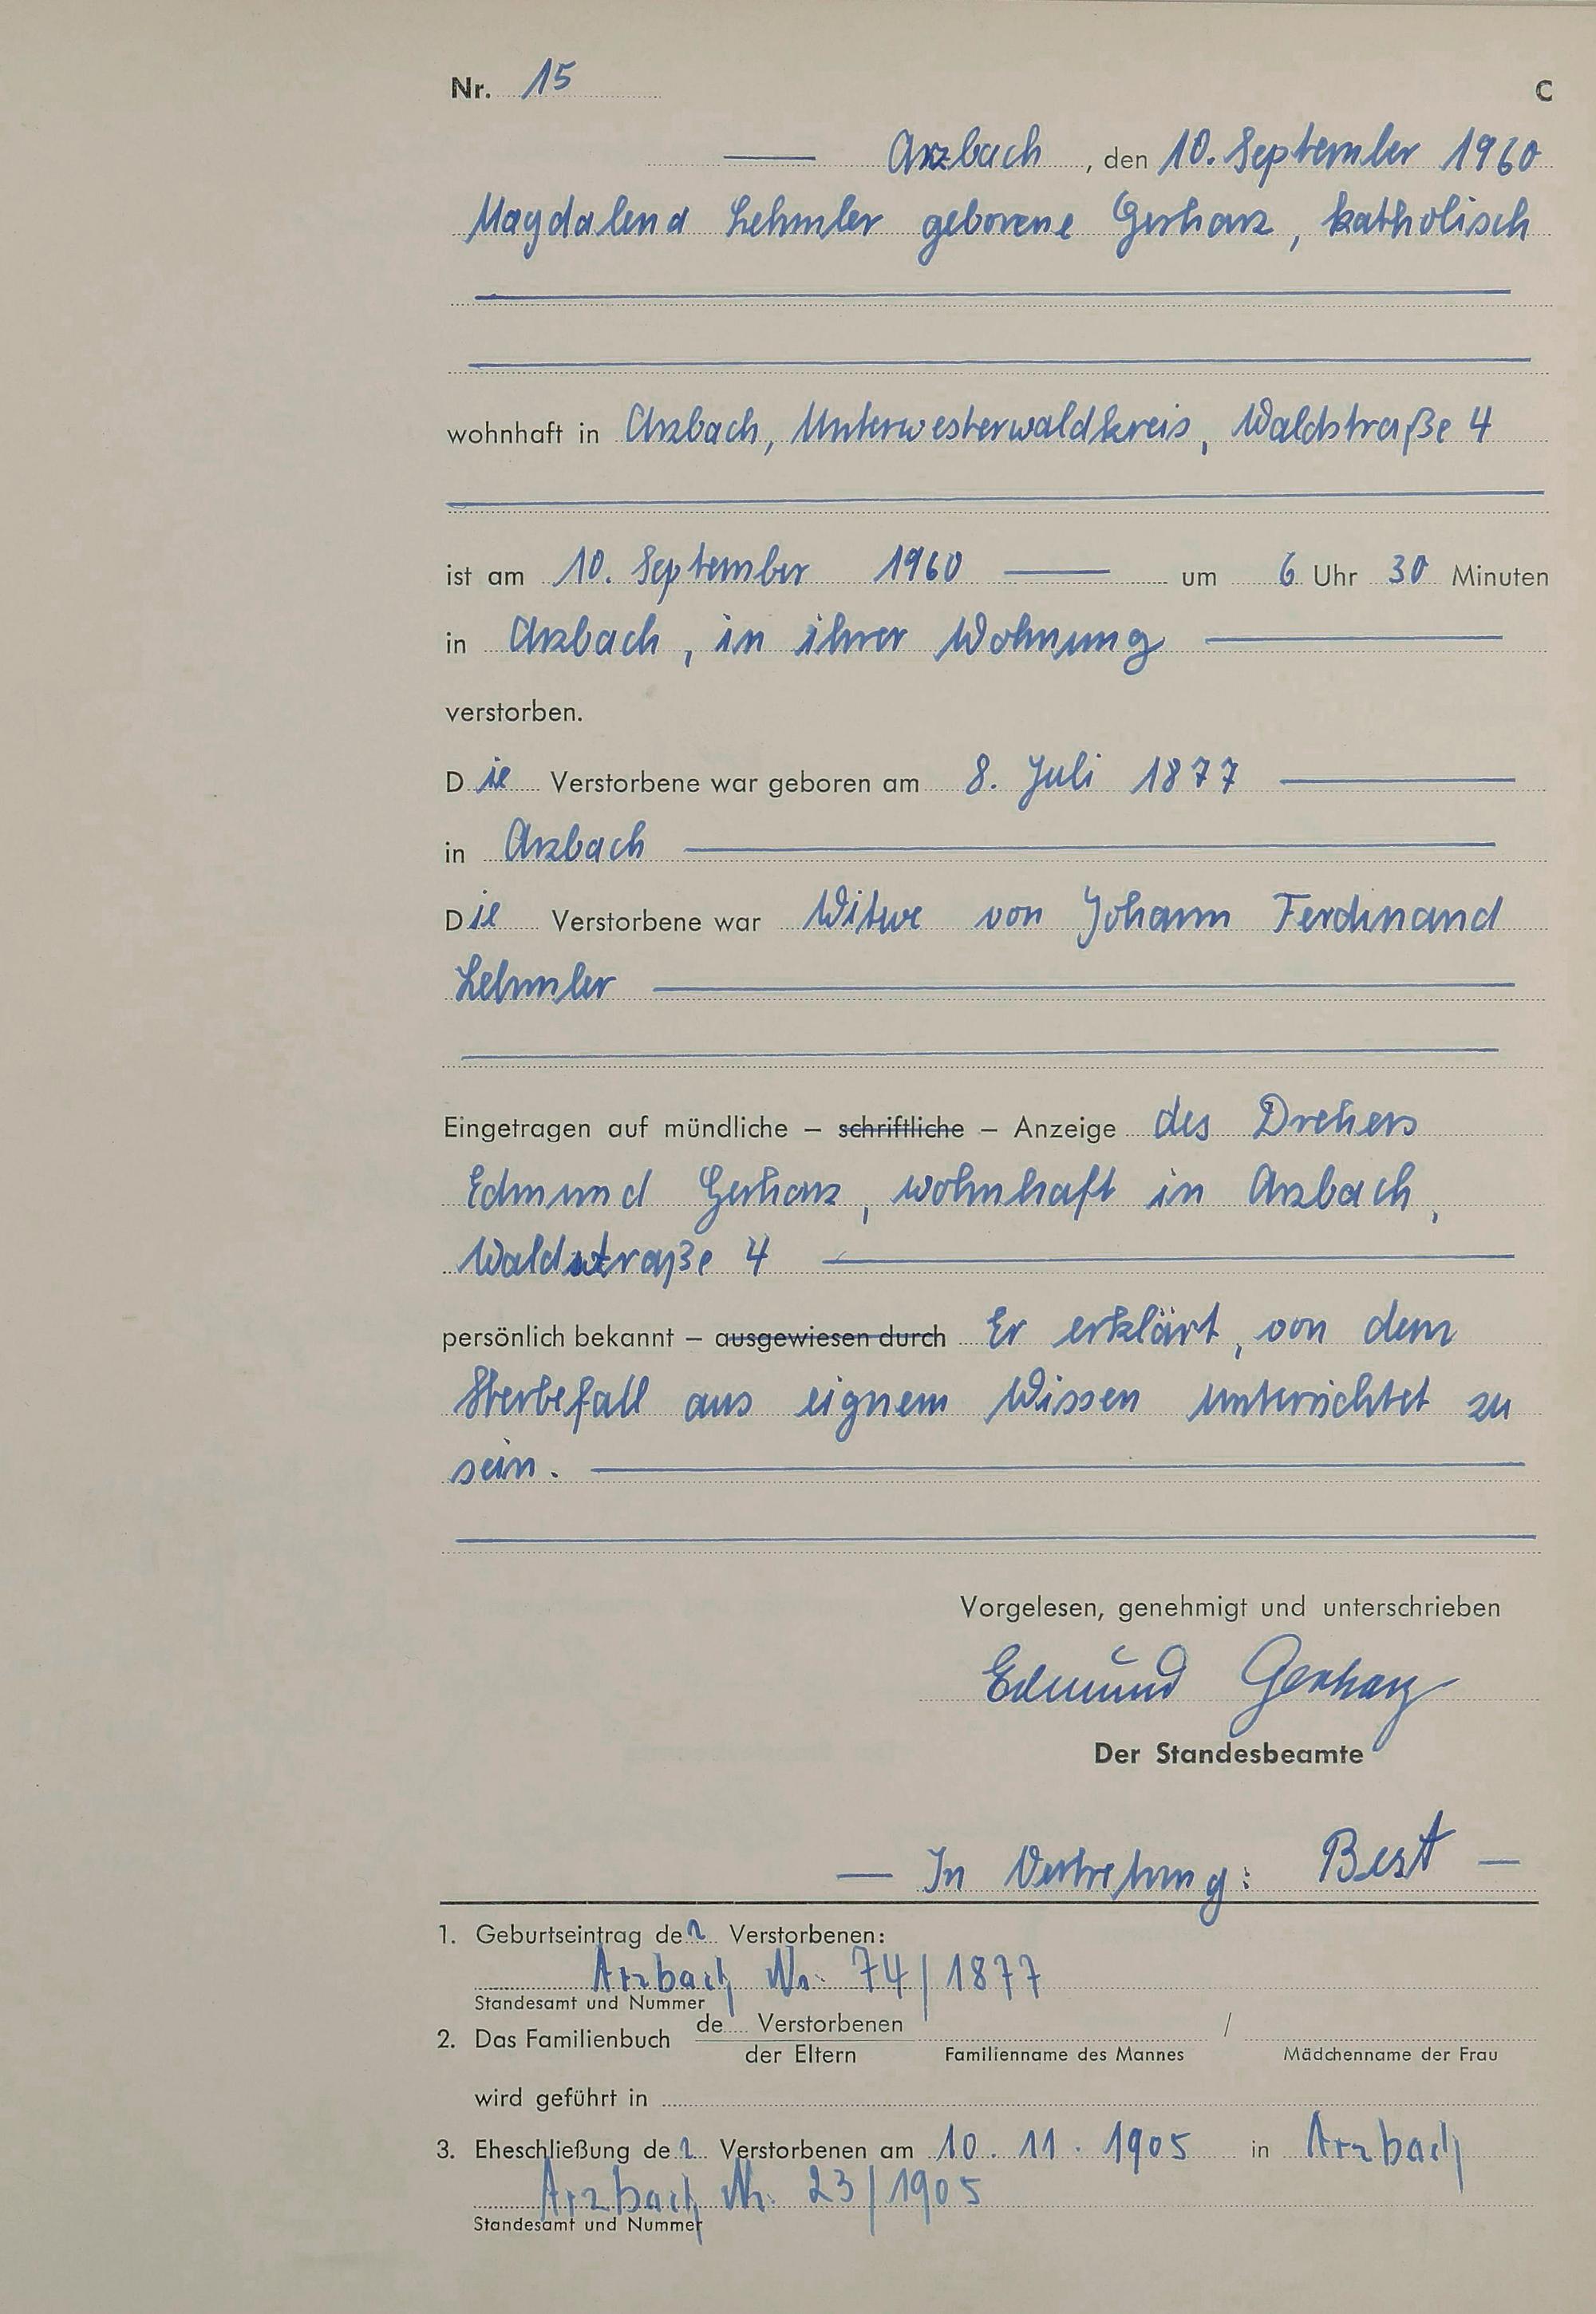 Nr. 15 C
Arzbach, den 10. September 1960
Magdalena Lehmler geborene Gerharz, katholisch
wohnhaft in Arzbach, Unterwesterwaldkreis, Waldstraße 4
ist am 10. September 1960 um 6 Uhr 30 Minuten
in Arzbach, in ihrer Wohnung
verstorben.
Die Verstorbene war geboren am 8. Juli 1877
in Arzbach
Die Verstorbene war Witwe von Johann Ferdinand
Lehmler
Eingetragen auf mündliche – schriftliche – Anzeige des Drehers
Edmund Gerharz, wohnhaft in Arzbach,
Waldstraße 4
persönlich bekannt – ausgewiesen durch Er erklärt, von dem
Sterbefall aus eignem Wissen unterrichtet zu
sein.
Vorgelesen, genehmigt und unterschrieben
Edmund Gerharz
Der Standesbeamte
— In Vertretung: Best —
1. Geburtseintrag der Verstorbenen:
Arzbach Nr. 74/1877
Standesamt und Nummer
2. Das Familienbuch de Verstorbenen /
der Eltern Familienname des Mannes Mädchenname der Frau
wird geführt in
3. Eheschließung der Verstorbenen am 10. 11. 1905 in Arzbach
Arzbach Nr. 23/1905
Standesamt und Nummer